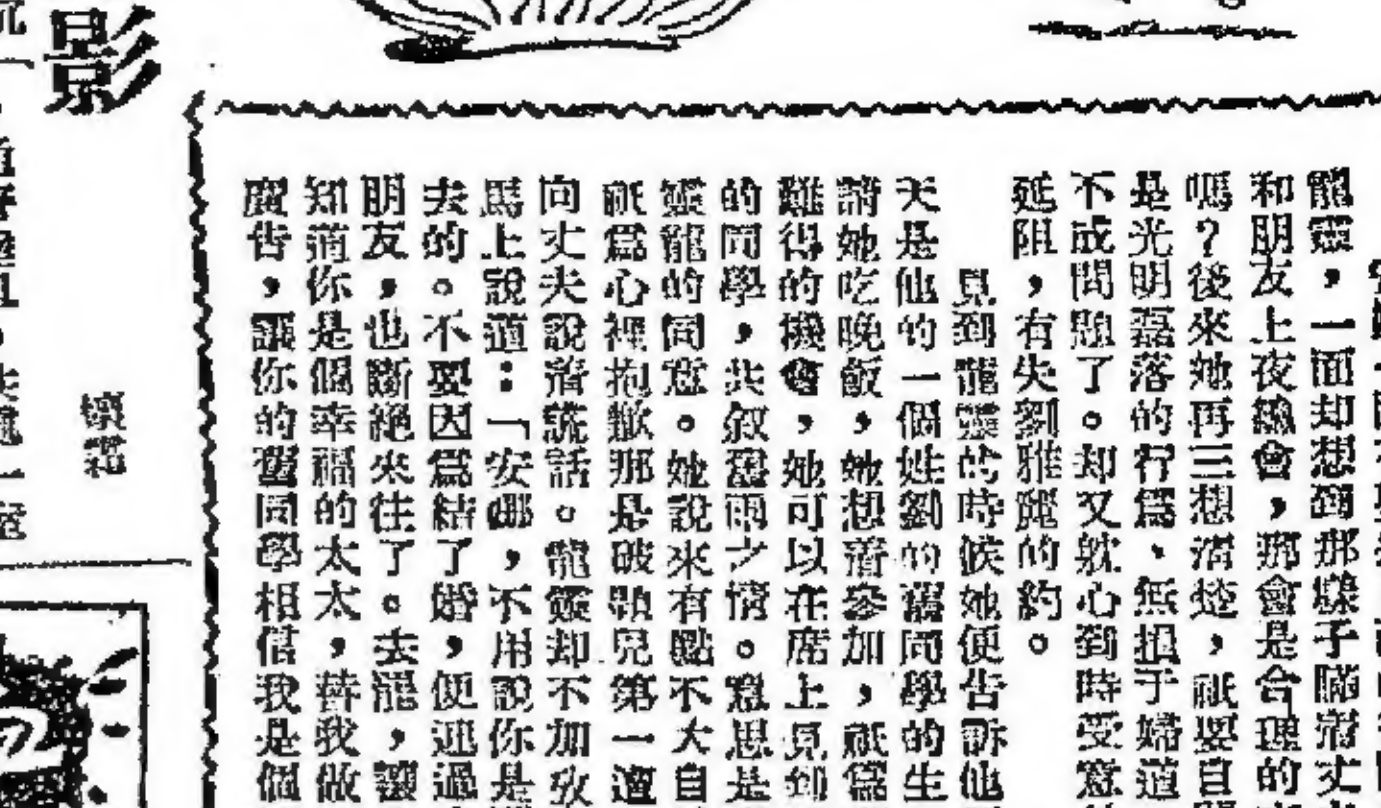 龍靈，一面却想到那樣子瞞着丈
和朋友上夜總會，那會是合理的
嗎？後來她再三想清楚，祇要自
是光明磊落的行爲，無損于婦道
不成問題了。却又躭心到時受意
延阻，有失劉雅麗的約。
見到龍靈的時候她便告訴他
天是他的一個姓劉的舊同學的生
請她吃晚飯，她想着參加，祇爲
難得的機會，她可以在席上見到
的同學，共叙舊雨之情。意思是
靈龍的同意。她說來有點不大自
祇爲心裡抱歉那是破題兒第一遭
向丈夫說着謊話。龍靈却不加攷
馬上說道：「安娜，不用說你是
去的。不要因爲結了婚，便連過
朋友，也斷絕來往了。去罷，讓
知道你是個幸福的太太，替我做
廣告，讓你的舊同學相信我是個
影